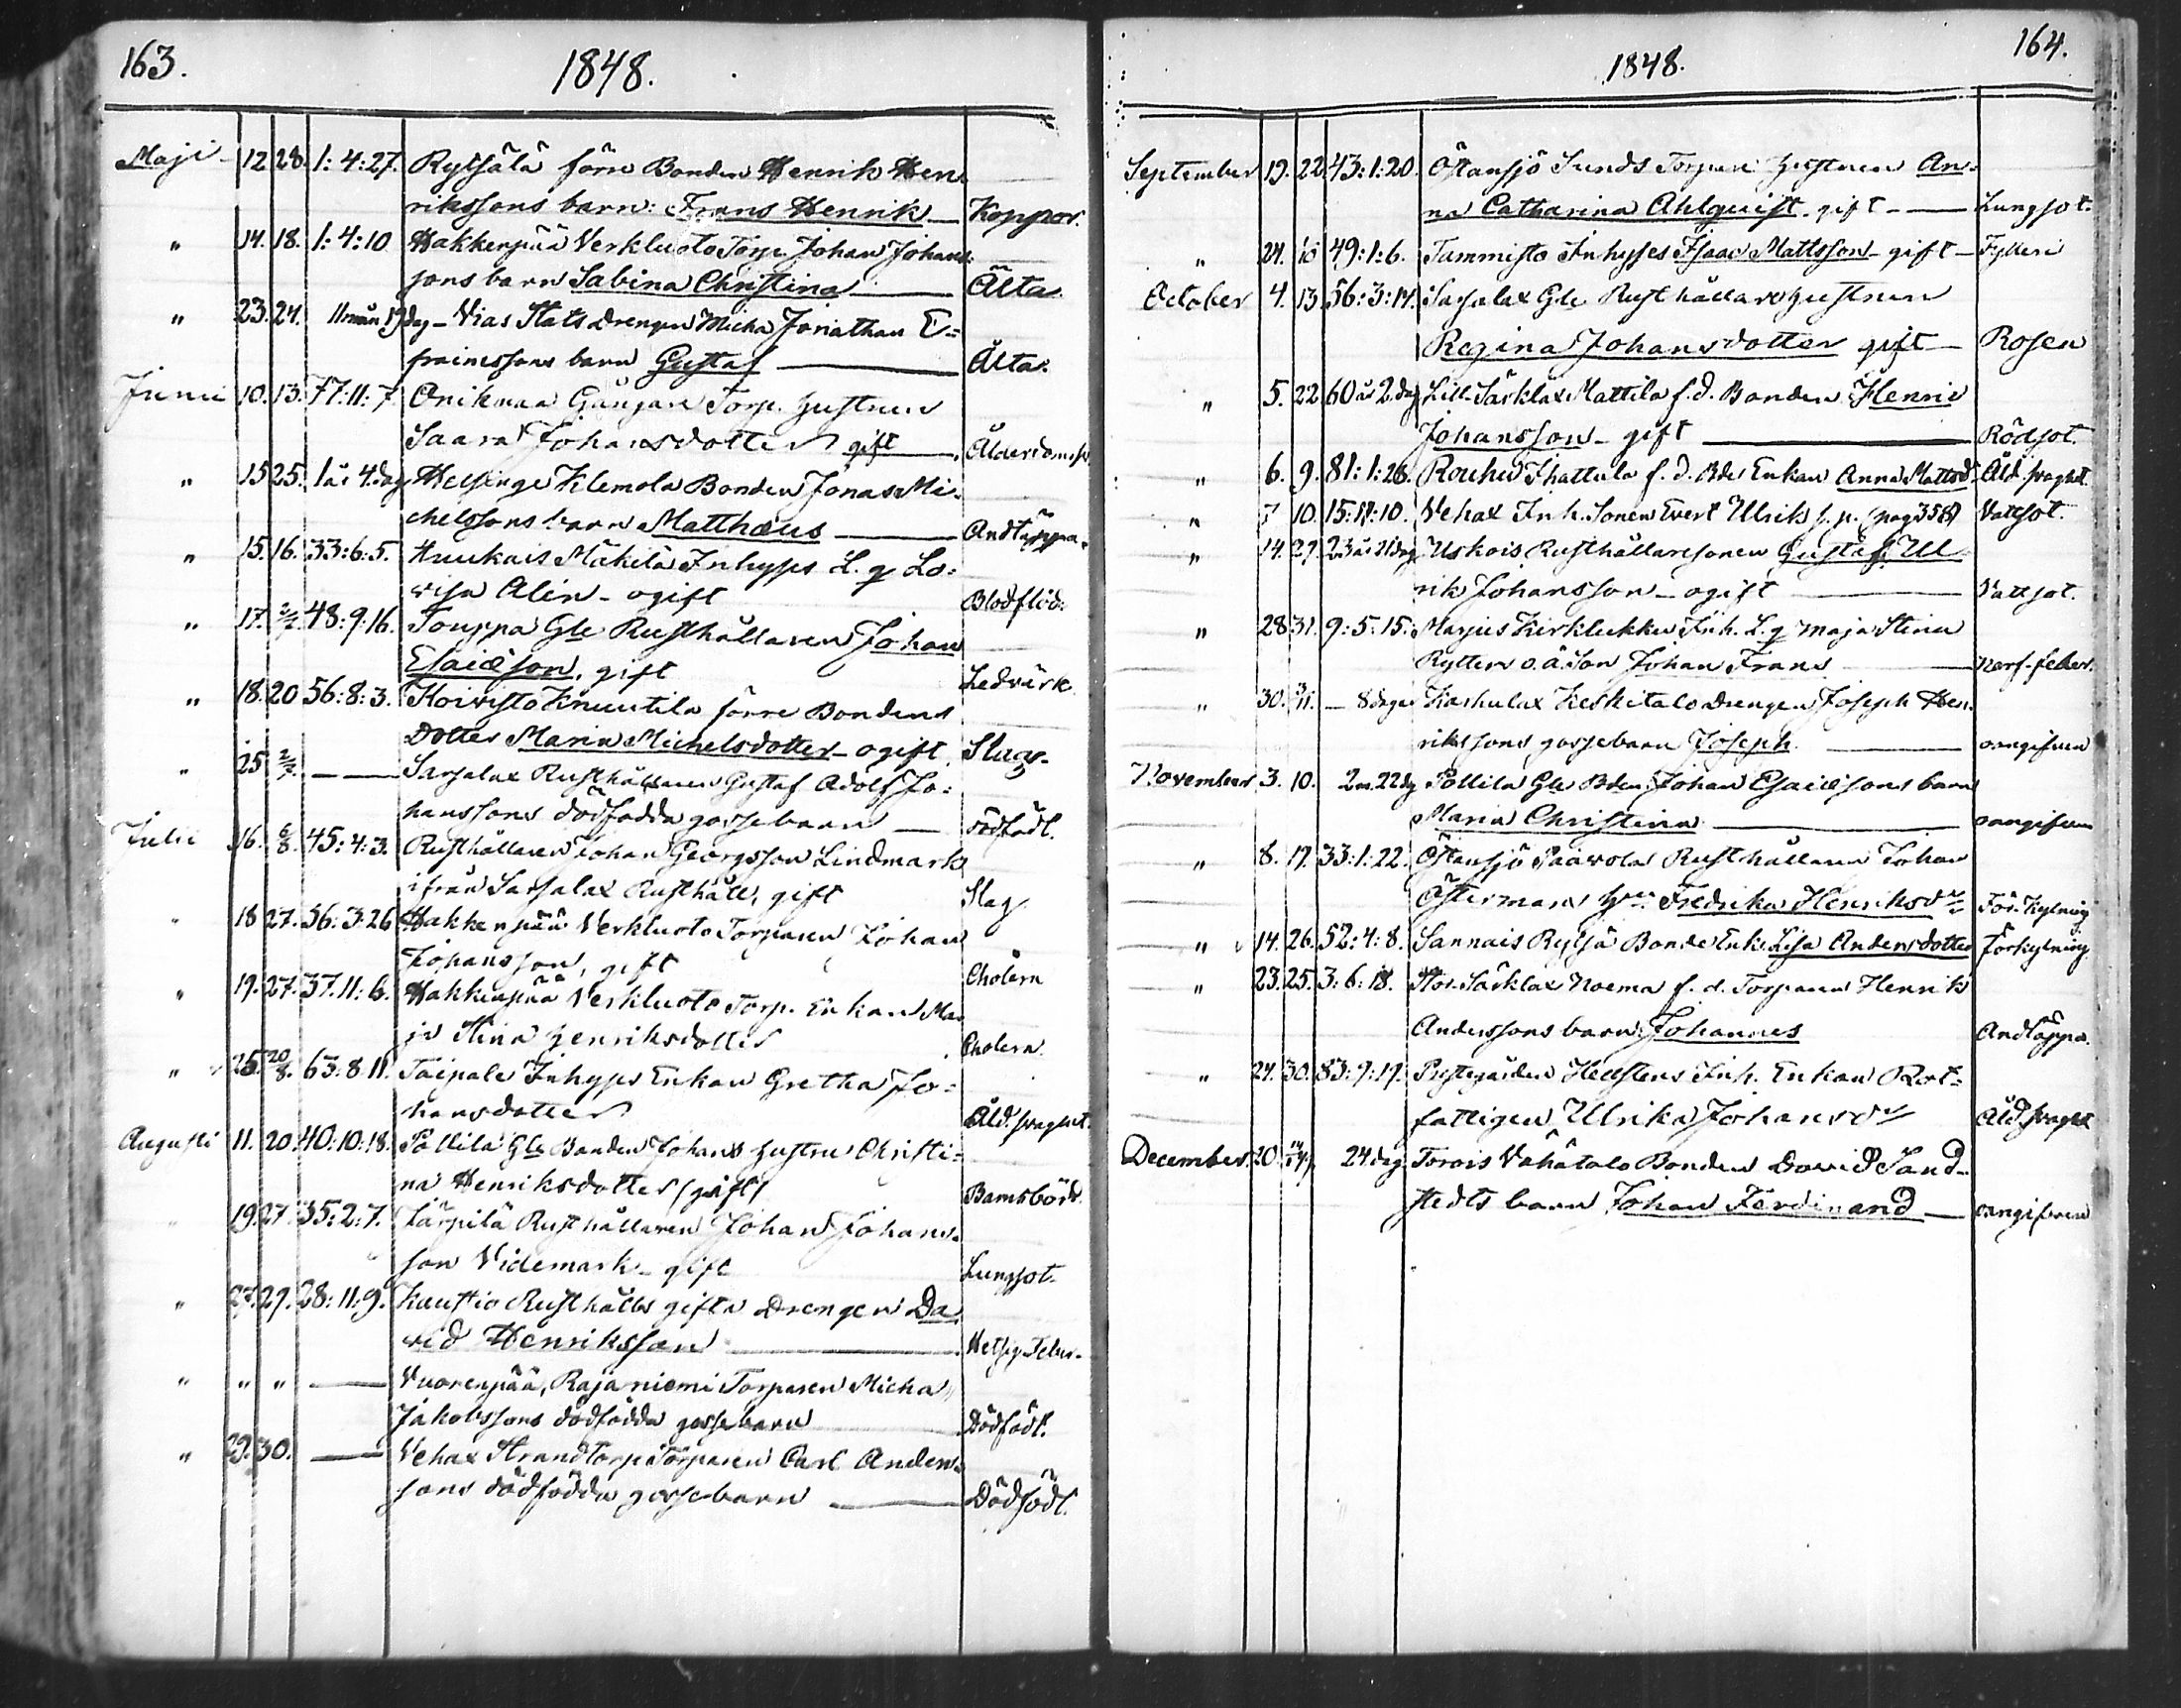 163.
1848.
Maji 12. 28. 1:4:27. Rytsälä förre Bonden Henrik Hen-
rikssons barn: Frans Henrik Koppor.
" 14. 18. 1:4:10 Hakkenpää Verkluoto Torp. Johan Johans-
sons barn Sabina Christina Älta.
" 23. 24. 11 mån 19 dag Vias Stats Drengen Micha Jonathan E-
fraimssons barn Gustaf Älta.
Junii 10. 13. 77:11:7 Onikmaa Gångare Torp. hustrun
Saara Johansdotter gift Ålderdomsv.
" 15 25. 1 år 4 dag Helsinge Klemola Bonden Jonas Mi-
chelssons barn Matthæus Andtäppa.
" 15. 16. 33:6:5. Huukais Mäkelä Inhyses L. q Lo-
visa Alin - ogift Blodflöd.
" 17. 2/7. 48:9:16. Touppa Gle Rusthållaren Johan
Esaiæson, gift Ledvärk
" 18. 20 56:8:3. Koivisto Knuutila förre Bondens
Dotter Maria Michelsdotter - ogift Slag.
" 25 2/7. Sarsalax Rusthållaren Gustaf Adolf Jo-
hanssons dödfödda gossebarn dödfödt.
Julii 16. 6/8. 45:4:3. Rusthållaren Johan Georgsson Lindmark
ifrån Sarsalax Rusthåll, gift Slag
" 18 27. 56:3:26 Hakkenpää Verkluoto Torparen Johan
Johansson, gift Cholera
" 19. 27. 37:11:6. Hakkenpää Verkluoto Torp. Enkan Ma-
ja Stina Henriksdotter Cholera.
" 25. 20/8. 63:8:11. Taipale Inhyses Enkan Gretha Jo-
hansdotter Åld. svaghet.
Augusti 11. 20. 40:10:18. Pällilä Gle Bonden Johans hustru Christi-
na Henriksdotter (gift) Barnsbörd.
19. 27 35:2:7. Lärpilä Rusthållaren Johan Johans-
son Videmark - gift Lungsot.
" 27. 29. 28:11:9. Kaustio Rusthålls gifta Drengen Da-
vid Henriksson Hetsig Feber.
" " " Vuorenpää, Rajaniemi Torparen Micha
Jakobssons dödfödda gossebarn Dödfödt.
" 29. 30. Vehax Strandtorp Torparen Carl Anders-
sons dödfödda gossebarn Dödfödt.
164.
1848.
September 19. 22. 43:1:20. Östansjö Sunds Torpare hustrun An-
na Catharina Ahlquist. gift Lungsot.
" 24. 49:1:6. Tammisto Inhyses Isaac Mattsson - gift Fylleri
October 4. 13. 56:3:14. Sarsalax Gle Rusthållarehustrun
Regina Johansdotter gift Rosen
" 5. 22 60 år 2. dag Lill-Särklax Mattila f.d. Bonden Henric
Johansson - gift Rödsot.
" 6. 9. 81:1:28. Rouhu Ihattula f.d. Bde Enkan Anna Mattsd. Åld. svaghet.
" 7 10. 15:11:10. Vehax Inh. Sonen Evert Ulrik s.p. (pag 358) Vattsot.
" 14. 29. 23 år 21 dag Uskois Rusthållaresonen Gustaf Ul-
rik Johansson - ogift Vattsot.
" 28 31. 9:5:15. Marjus Kirklukku Inh. L. q Maja Stina
Rytters o.ä. Son Johan Frans nerf-feber.
" 30. 3/11. 8 dagar Kashulax Keskitalo Drengen Joseph Hen-
rikssons gossebarn Joseph oangifven
November 3. 10. 2 m. 22 dg Pällilä Gle Bden Johan Esaiæsons barn
Maria Christina oangifven
" 8. 19. 33:1:22. Östansjö Paavola Rusthållaren Johan
Östermans hu: Fredrika Henriksdr Förkylning
" 14. 26. 52:4:8. Sannais Rytsä Bonde Enk. Lisa Andersdotter Förkylning
" 23. 25. 3:6:18. Stor-Särklax Noema f.d. Torparen Henrik
Anderssons barn: Johannes Andtäppa.
" 24. 30. 83:9:19. Prestgården Hellstens Inh. Enkan Rot-
fattigen Ulrika Johansdr Åld. svaghet
December 20 24 dag. Torois Vähätalo Bonden David Sand-
stedts barn Johan Ferdinand oangifven